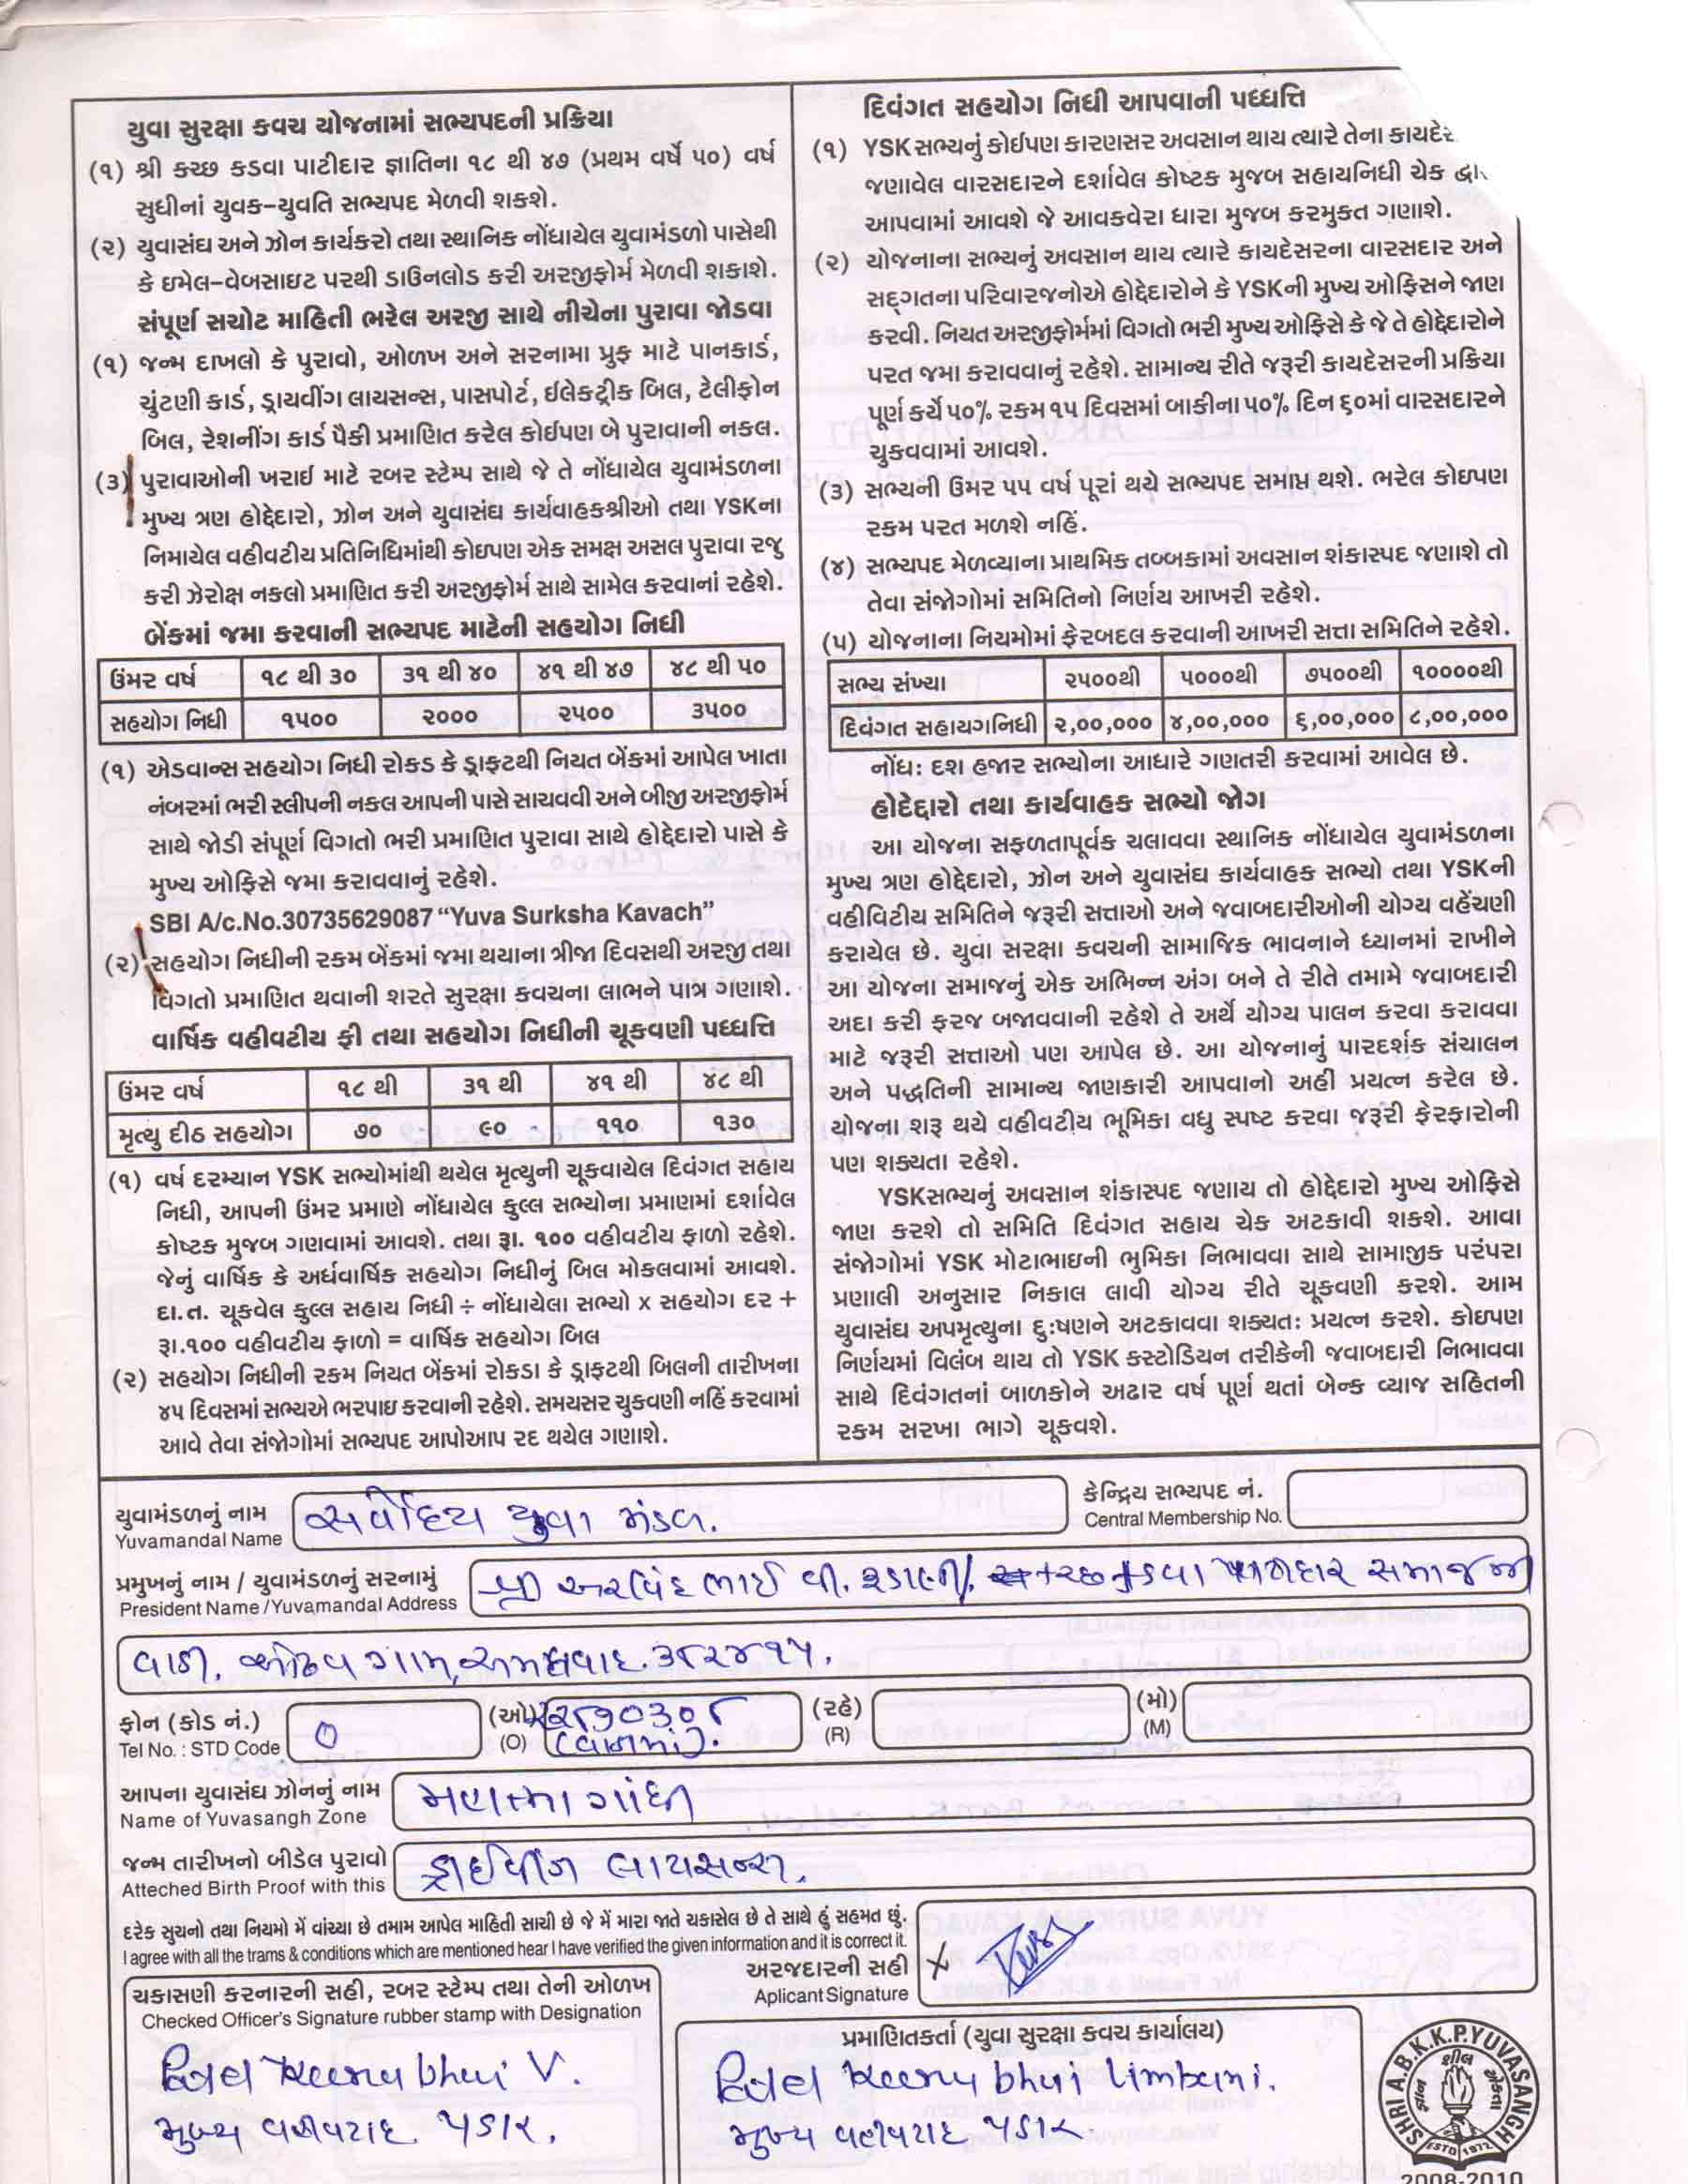 યુવા સુરક્ષા કવચ યોજનામાં સભ્યપદની પ્રક્રિયા
(૧) શ્રી કચ્છ કડવા પાટીદાર જ્ઞાતિના ૧૮ થી ૪૭ (પ્રથમ વર્ષે ૫૦) વર્ષ
સુધીનાં યુવક-યુવતિ સભ્યપદ મેળવી શકશે.
(૨) યુવાસંઘ અને ઝોન કાર્યકરો તથા સ્થાનિક નોંધાયેલ યુવામંડળો પાસેથી
કે ઇમેલ-વેબસાઇટ પરથી ડાઉનલોડ કરી અરજીફોર્મ મેળવી શકાશે.
સંપૂર્ણ સચોટ માહિતી ભરેલ અરજી સાથે નીચેના પુરાવા જોડવા
(૧) જન્મ દાખલો કે પુરાવો, ઓળખ અને સરનામા પ્રુફ માટે પાનકાર્ડ,
ચુંટણી કાર્ડ, ડ્રાયવીંગ લાયસન્સ, પાસપોર્ટ, ઇલેકટ્રીક બિલ, ટેલીફોન
બિલ, રેશનીંગ કાર્ડ પૈકી પ્રમાણિત કરેલ કોઇપણ બે પુરાવાની નકલ.
(૩) પુરાવાઓની ખરાઇ માટે રબર સ્ટેમ્પ સાથે જે તે નોંધાયેલ યુવામંડળના
મુખ્ય ત્રણ હોદ્દેદારો, ઝોન અને યુવાસંઘ કાર્યવાહકશ્રીઓ તથા YSKના
નિમાયેલ વહીવટીય પ્રતિનિધિમાંથી કોઇપણ એક સમક્ષ અસલ પુરાવા રજુ
કરી ઝેરોક્ષ નકલો પ્રમાણિત કરી અરજીફોર્મ સાથે સામેલ કરવાનાં રહેશે.
બેંકમાં જમા કરવાની સભ્યપદ માટેની સહયોગ નિધી
ઉંમર વર્ષ ૧૮ થી ૩૦ ૩૧ થી ૪૦ ૪૧ થી ૪૭ ૪૮ થી ૫૦
સહયોગ નિધી ૧૫૦૦ ૨૦૦૦ ૨૫૦૦ ૩૫૦૦
(૧) એડવાન્સ સહયોગ નિધી રોકડ કે ડ્રાફટથી નિયત બેંકમાં આપેલ ખાતા
નંબરમાં ભરી સ્લીપની નકલ આપની પાસે સાચવવી અને બીજી અરજીફોર્મ
સાથે જોડી સંપૂર્ણ વિગતો ભરી પ્રમાણિત પુરાવા સાથે હોદ્દેદારો પાસે કે
મુખ્ય ઓફિસે જમા કરાવવાનું રહેશે.
SBI A/c.No.30735629087 “Yuva Surksha Kavach”
(૨) સહયોગ નિધીની રકમ બેંકમાં જમા થયાના ત્રીજા દિવસથી અરજી તથા
વિગતો પ્રમાણિત થવાની શરતે સુરક્ષા કવચના લાભને પાત્ર ગણાશે.
વાર્ષિક વહીવટીય ફી તથા સહયોગ નિધીની ચૂકવણી પધ્ધતિ
ઉંમર વર્ષ ૧૮ થી ૩૧ થી ૪૧ થી ૪૮ થી
મૃત્યુ દીઠ સહયોગ ૭૦ ૯૦ ૧૧૦ ૧૩૦
(૧) વર્ષ દરમ્યાન YSK સભ્યોમાંથી થયેલ મૃત્યુની ચૂકવાયેલ દિવંગત સહાય
નિધી, આપની ઉંમર પ્રમાણે નોંધાયેલ કુલ્લ સભ્યોના પ્રમાણમાં દર્શાવેલ
કોષ્ટક મુજબ ગણવામાં આવશે. તથા રૂા. ૧૦૦ વહીવટીય ફાળો રહેશે.
જેનું વાર્ષિક કે અર્ધવાર્ષિક સહયોગ નિધીનું બિલ મોકલવામાં આવશે.
દા.ત. ચૂકવેલ કુલ્લ સહાય નિધી ÷ નોંધાયેલા સભ્યો x સહયોગ દર +
રૂા.૧૦૦ વહીવટીય ફાળો = વાર્ષિક સહયોગ બિલ
(૨) સહયોગ નિધીની રકમ નિયત બેંકમાં રોકડા કે ડ્રાફટથી બિલની તારીખના
૪૫ દિવસમાં સભ્યએ ભરપાઇ કરવાની રહેશે. સમયસર ચુકવણી નહિં કરવામાં
આવે તેવા સંજોગોમાં સભ્યપદ આપોઆપ રદ થયેલ ગણાશે.
દિવંગત સહયોગ નિધી આપવાની પધ્ધતિ
(૧) YSK સભ્યનું કોઇપણ કારણસર અવસાન થાય ત્યારે તેના કાયદે
જણાવેલ વારસદારને દર્શાવેલ કોષ્ટક મુજબ સહાયનિધી ચેક
આપવામાં આવશે જે આવકવેરા ધારા મુજબ કરમુકત ગણાશે.
(૨) યોજનાના સભ્યનું અવસાન થાય ત્યારે કાયદેસરના વારસદાર અને
સદ્દગતના પરિવારજનોએ હોદ્દેદારોને કે YSKની મુખ્ય ઓફિસને જાણ
કરવી. નિયત અરજીફોર્મમાં વિગતો ભરી મુખ્ય ઓફિસે કે જે તે હોદ્દેદારોને
પરત જમા કરાવવાનું રહેશે. સામાન્ય રીતે જરૂરી કાયદેસરની પ્રક્રિયા
પૂર્ણ કર્યે ૫૦% રકમ ૧૫ દિવસમાં બાકીના ૫૦% દિન ૬૦માં વારસદારને
ચુકવવામાં આવશે.
(૩) સભ્યની ઉંમર ૫૫ વર્ષ પૂરાં થયે સભ્યપદ સમાપ્ત થશે. ભરેલ કોઇપણ
રકમ પરત મળશે નહિં.
(૪) સભ્યપદ મેળવ્યાના પ્રાથમિક તબ્બકામાં અવસાન શંકાસ્પદ જણાશે તો
તેવા સંજોગોમાં સમિતિનો નિર્ણય આખરી રહેશે.
(૫) યોજનાના નિયમોમાં ફેરબદલ કરવાની આખરી સત્તા સમિતિને રહેશે.
સભ્ય સંખ્યા ૨૫૦૦થી ૫૦૦૦થી ૭૫૦૦થી ૧૦૦૦૦થી
દિવંગત સહાયગનિધી ૨,૦૦,૦૦૦ ૪,૦૦,૦૦૦ ૬,૦૦,૦૦૦ ૮,૦૦,૦૦૦
નોંધ: દશ હજાર સભ્યોના આધારે ગણતરી કરવામાં આવેલ છે.
હોદેદ્દારો તથા કાર્યવાહક સભ્યો જોગ
આ યોજના સફળતાપૂર્વક ચલાવવા સ્થાનિક નોંધાયેલ યુવામંડળના
મુખ્ય ત્રણ હોદ્દેદારો, ઝોન અને યુવાસંઘ કાર્યવાહક સભ્યો તથા YSKની
વહીવિટીય સમિતિને જરૂરી સત્તાઓ અને જવાબદારીઓની યોગ્ય વહેંચણી
કરાયેલ છે. યુવા સરક્ષા કવચની સામાજિક ભાવનાને ધ્યાનમાં રાખીને
આ યોજના સમાજનું એક અભિન્ન અંગ બને તે રીતે તમામે જવાબદારી
અદા કરી ફરજ બજાવવાની રહેશે તે અર્થે યોગ્ય પાલન કરવા કરાવવા
માટે જરૂરી સત્તાઓ પણ આપેલ છે. આ યોજનાનું પારદર્શક સંચાલન
અને પદ્ધતિની સામાન્ય જાણકારી આપવાનો અહીં પ્રયત્ન કરેલ છે.
યોજના શરૂ થયે વહીવટીય ભૂમિકા વધુ સ્પષ્ટ કરવા જરૂરી ફેરફારોની
પણ શક્યતા રહેશે.
YSKસભ્યનું અવસાન શંકાસ્પદ જણાય તો હોદ્દેદારો મુખ્ય ઓફિસે
જાણ કરશે તો સમિતિ દિવંગત સહાય ચેક અટકાવી શકશે. આવા
સંજોગોમાં YSK મોટાભાઇની ભુમિકા નિભાવવા સાથે સામાજીક પરંપરા
પ્રણાલી અનુસાર નિકાલ લાવી યોગ્ય રીતે ચૂકવણી કરશે. આમ
યુવાસંઘ અપમૃત્યુના દુ:ષણને અટકાવવા શક્યત: પ્રયત્ન કરશે. કોઇપણ
નિર્ણયમાં વિલંબ થાય તો YSK કસ્ટોડિયન તરીકેની જવાબદારી નિભાવવા
સાથે દિવંગતનાં બાળકોને અઢાર વર્ષ પૂર્ણ થતાં બેન્ક વ્યાજ સહિતની
રકમ સરખા ભાગે ચૂકવશે.
યુવામંડળનું નામ સર્વોદય યુવા મંડળ. કેન્દ્રિય સભ્યપદ નં.
Yuvamandal Name Central Membership No.
પ્રમુખનું નામ / યુવામંડળનું સરનામું શ્રી અરવિંદભાઈ વી. રુડાણી, કચ્છ કડવા પાટીદાર સમાજની
President Name/Yuvamandal Address
વાડી, ઓઢવ ગામ, અમદાવાદ. ૩૮૨૪૧૫.
ફોન (કોડ નં.) 0 (ઓ) ૨૨૮૭૦૩૦૮ (રહે) (મો)
Tel No. : STD Code (O) (વાડીમાં). (R) (M)
આપના યુવાસંઘ ઝોનનું નામ મહાત્મા ગાંધી
Name of Yuvasangh Zone
જન્મ તારીખનો બીડેલ પુરાવો ડ્રાઈવીંગ લાયસન્સ.
Atteched Birth Proof with this
દરેક સુચનો તથા નિયમો મેં વાંચ્યા છે તમામ આપેલ માહિતી સાચી છે જે મેં મારા જાતે ચકાસેલ છે તે સાથે હું સહમત છું.
I agree with all the trams & conditions which are mentioned hear I have verified the given information and it is correct it.
અરજદારની સહી X
Aplicant Signature
ચકાસણી કરનારની સહી, રબર સ્ટેમ્પ તથા તેની ઓળખ
Checked Officer's Signature rubber stamp with Designation
V.
મુખ્ય વહીવટદાર
પ્રમાણિતકર્તા (યુવા સુરક્ષા કવચ કાર્યાલય)
Limbani.
મુખ્ય વહીવટદાર
SHRI A.B.K.K.P. YUVASANGH
શીલ
જ્ઞાન
એકતા
ESTD 1972
2008-2010